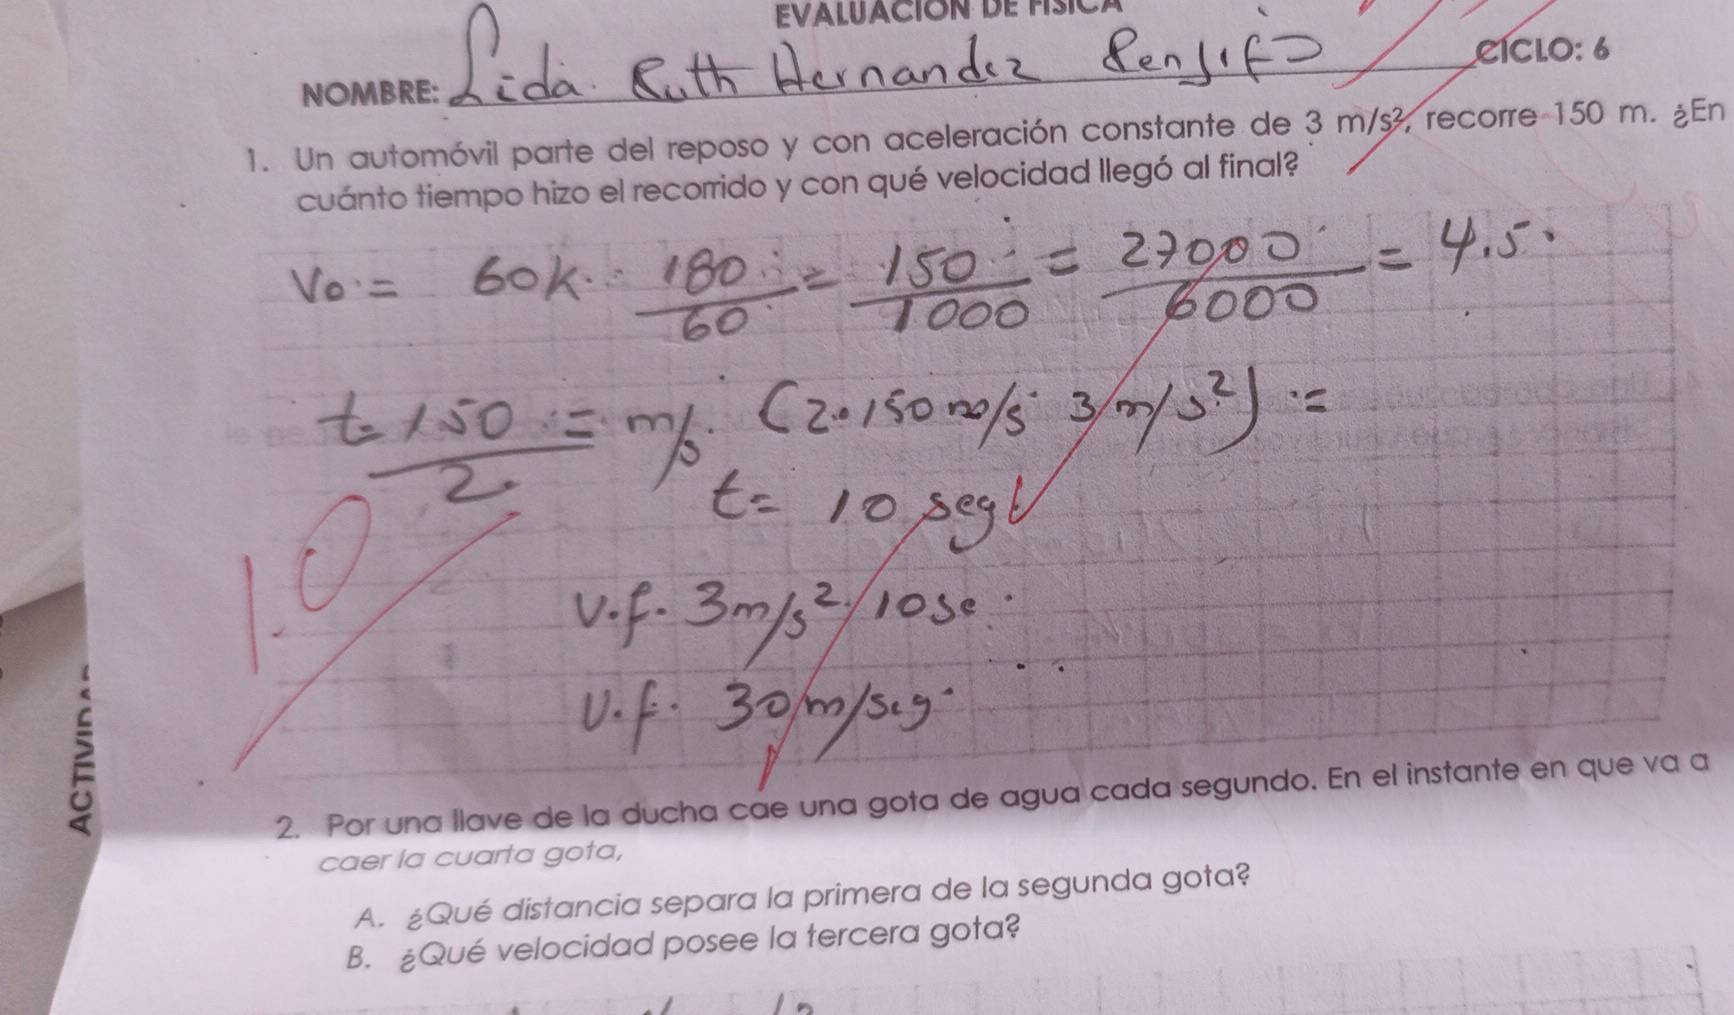 EVALUACIÓN DE FÍSICA
NOMBRE: Lida Ruth Hernandez Renjifo CICLO: 6
1. Un automóvil parte del reposo y con aceleración constante de 3 m/s², recorre 150 m. ¿En
cuánto tiempo hizo el recorrido y con qué velocidad llegó al final?
Vo = 60k. 180/60 = 150/1000 = 27000/6000 = 4.5.
t = 150/2. = m/s. (2.150 m/s 3 m/s²) =
t = 10 seg
1.0
V.f. 3m/s². 10se.
V.f. 30m/seg.
ACTIVIDAD
2. Por una llave de la ducha cae una gota de agua cada segundo. En el instante en que va a
caer la cuarta gota,
A. ¿Qué distancia separa la primera de la segunda gota?
B. ¿Qué velocidad posee la tercera gota?